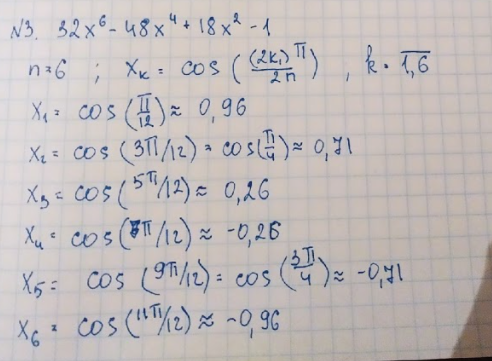 N3. 32x⁶ - 48x⁴ + 18x² - 1
n=6 ; Xₖ = cos ((2k₁)π / 2n) , k = 1,6
X₁ = cos (π/12) ≈ 0,96
X₂ = cos (3π/12) = cos(π/4) ≈ 0,71
X₃ = cos (5π/12) ≈ 0,26
X₄ = cos (7π/12) ≈ -0,26
X₅ = cos (9π/12) = cos (3π/4) ≈ -0,71
X₆ = cos (11π/12) ≈ -0,96